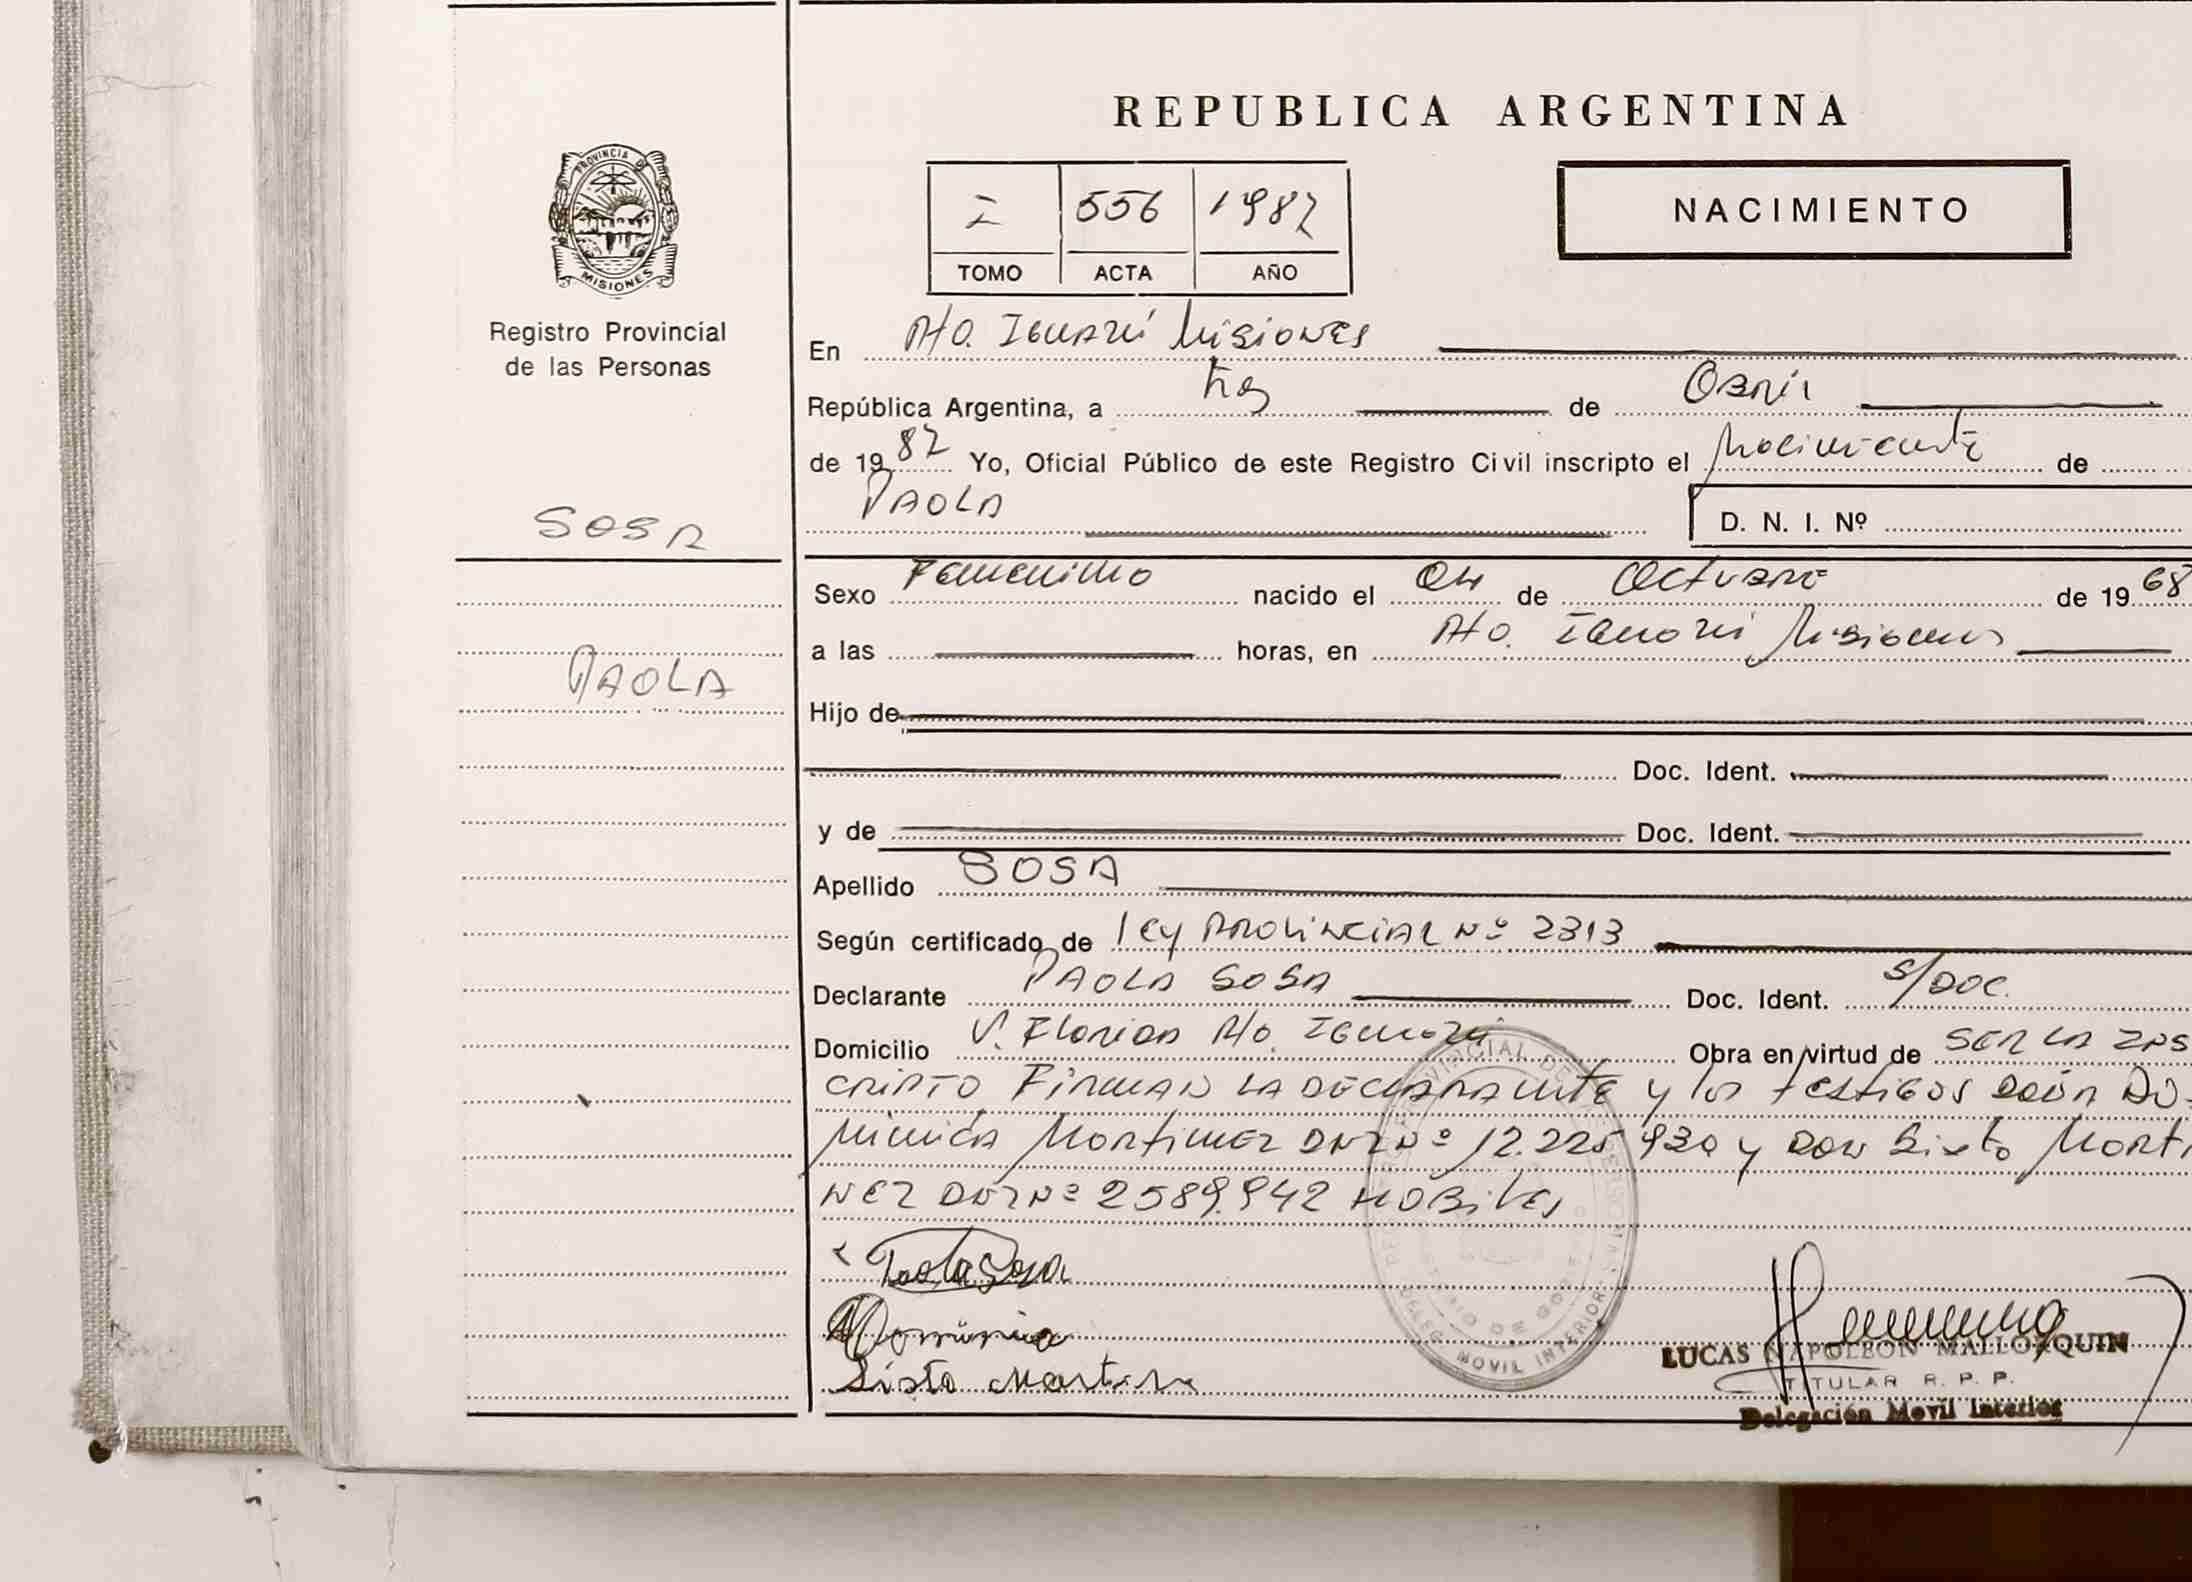 REPUBLICA ARGENTINA
PROVINCIA DE
MISIONES
Registro Provincial
de las Personas
I 556 1982
TOMO ACTA AÑO
NACIMIENTO
En Pto. Iguazú Misiones
República Argentina, a tres de Abril
de 1982 Yo, Oficial Público de este Registro Civil inscripto el Nacimiento de
PAOLA
D. N. I. Nº
SOSA
PAOLA
Sexo Femenino nacido el 04 de Octubre de 1968
a las horas, en Pto. Iguazú Misiones
Hijo de
Doc. Ident.
y de Doc. Ident.
Apellido SOSA
Según certificado de ley Provincial Nº 2313
Declarante PAOLA SOSA Doc. Ident. S/DOC.
Domicilio V. Florida Pto. Iguazú Obra en virtud de SER LA INS
CRIPTO FIRMAN LA DECLARANTE y los testigos DOÑA DO-
MINICA Martinez DNI Nº 12.225 930 y DON Sixto MARTI
NEZ DNI Nº 2589.942 HABILES
Paola Sosa
Dominica
Sixto Martinez
DELEG. MOVIL INTERIOR
LUCAS NAPOLEON MALLOZQUIN
TITULAR R. P. P.
Delegación Movil Interior